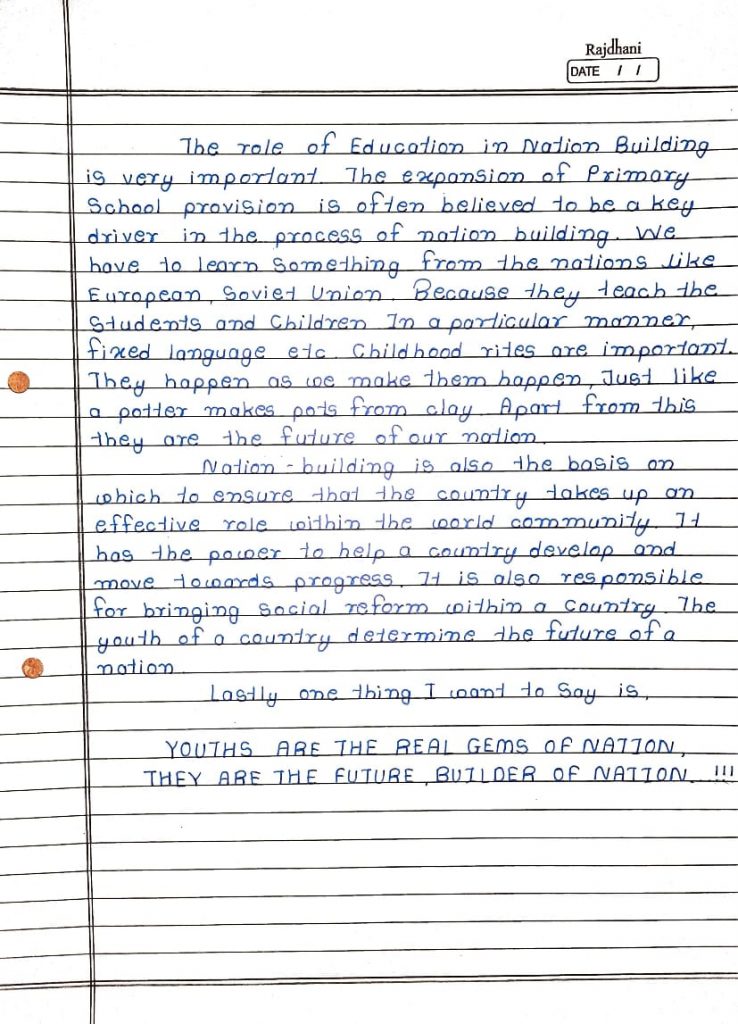 Rajdhani
DATE / /
The role of Education in Nation Building
is very important. The expansion of Primary
School provision is often believed to be a key
driver in the process of nation building. We
have to learn something from the nations like
European, Soviet Union. Because they teach the
Students and Children In a particular manner,
fixed language etc. Childhood rites are important.
They happen as we make them happen, Just like
a potter makes pots from clay. Apart from this
they are the future of our nation.
Nation-building is also the basis on
which to ensure that the country takes up an
effective role within the world community. It
has the power to help a country develop and
move towards progress. It is also responsible
for bringing social reform within a Country. The
youth of a country determine the future of a
nation.
Lastly one thing I want to Say is,
YOUTHS ARE THE REAL GEMS OF NATION,
THEY ARE THE FUTURE, BUILDER OF NATION. !!!